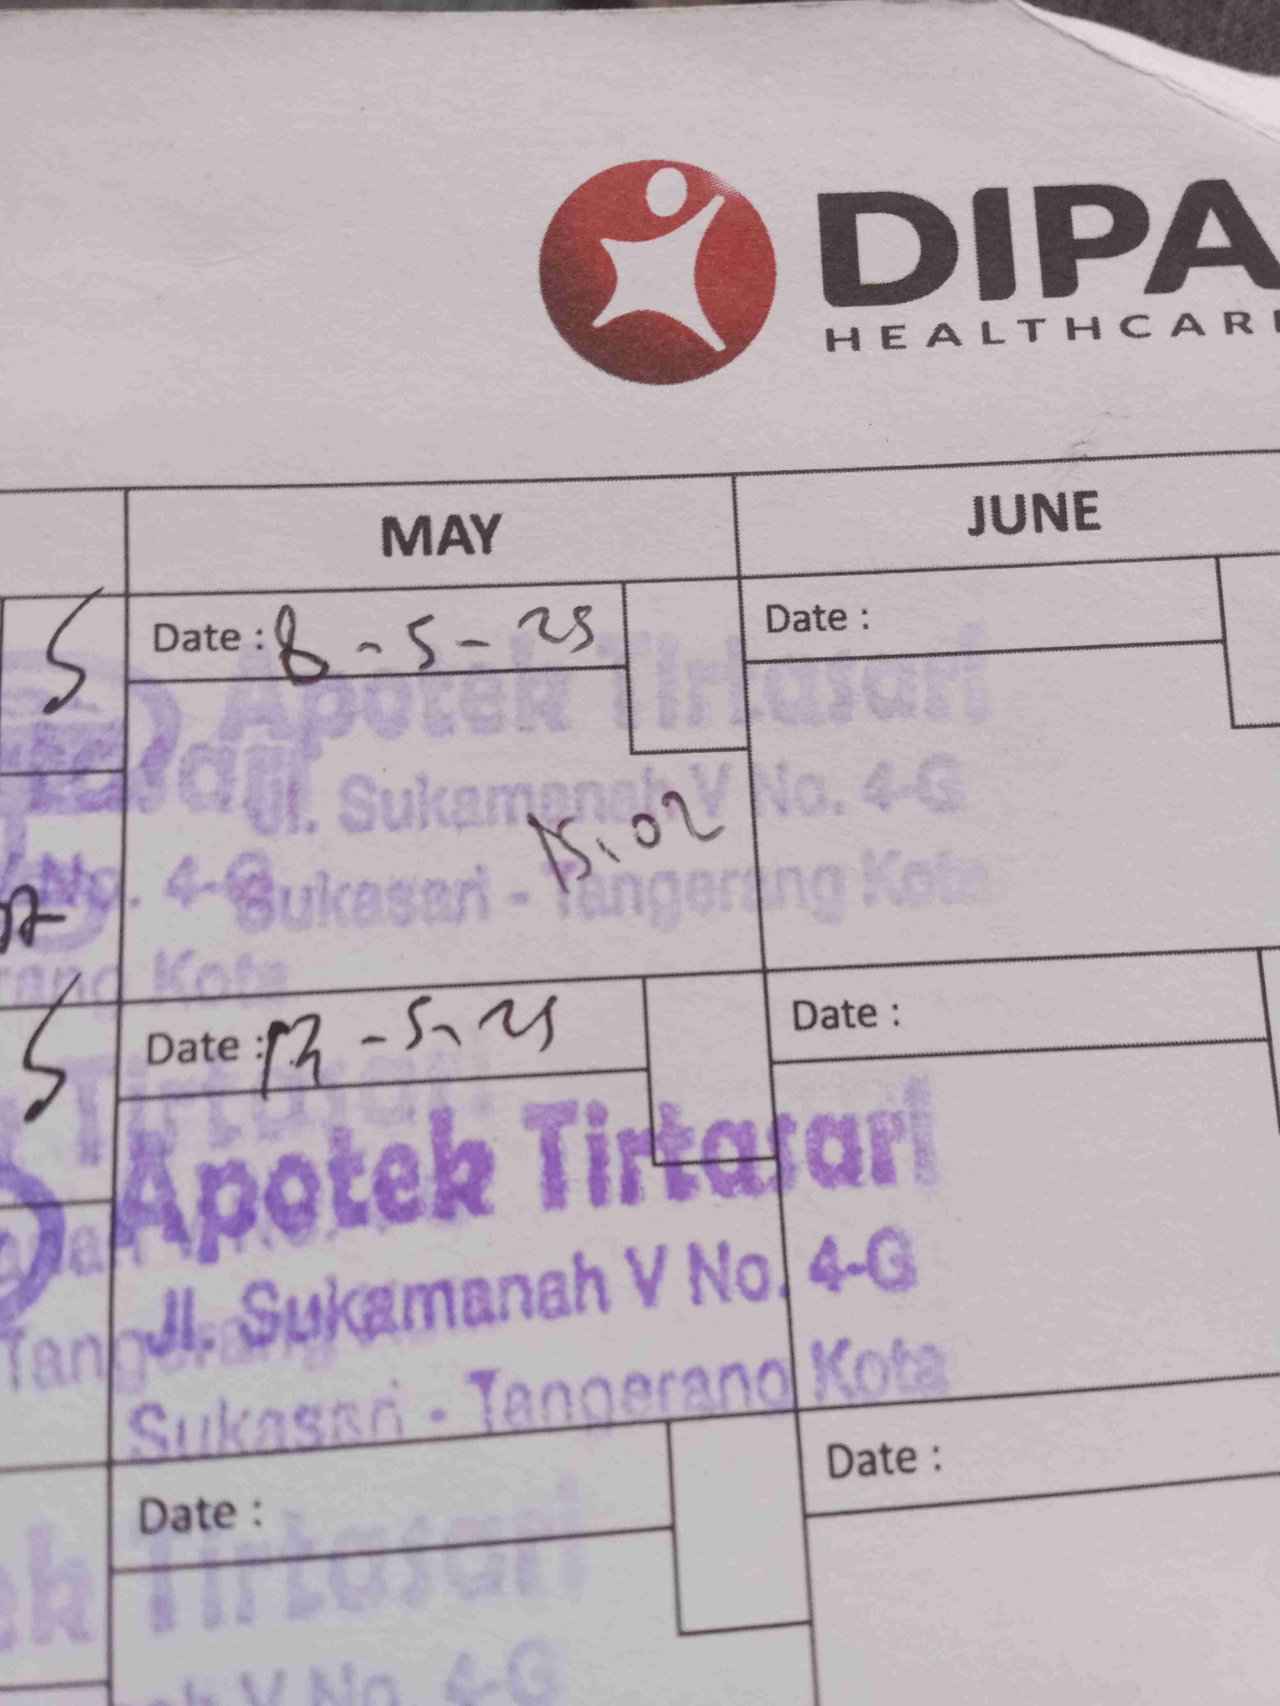 DIPA
HEALTHCAR
MAY
JUNE
Date : 8 - 5 - 25
Date :
Apotek Tirtasari
Jl. Sukamanah V No. 4-G
15.02
Sukasari - Tangerang Kota
No. 4-G
Kota
Date : 13 - 5 - 25
Date :
Apotek Tirtasari
Jl. Sukamanah V No. 4-G
Sukasari - Tangerang Kota
Date :
Date :
Tirtasari
V No. 4-G